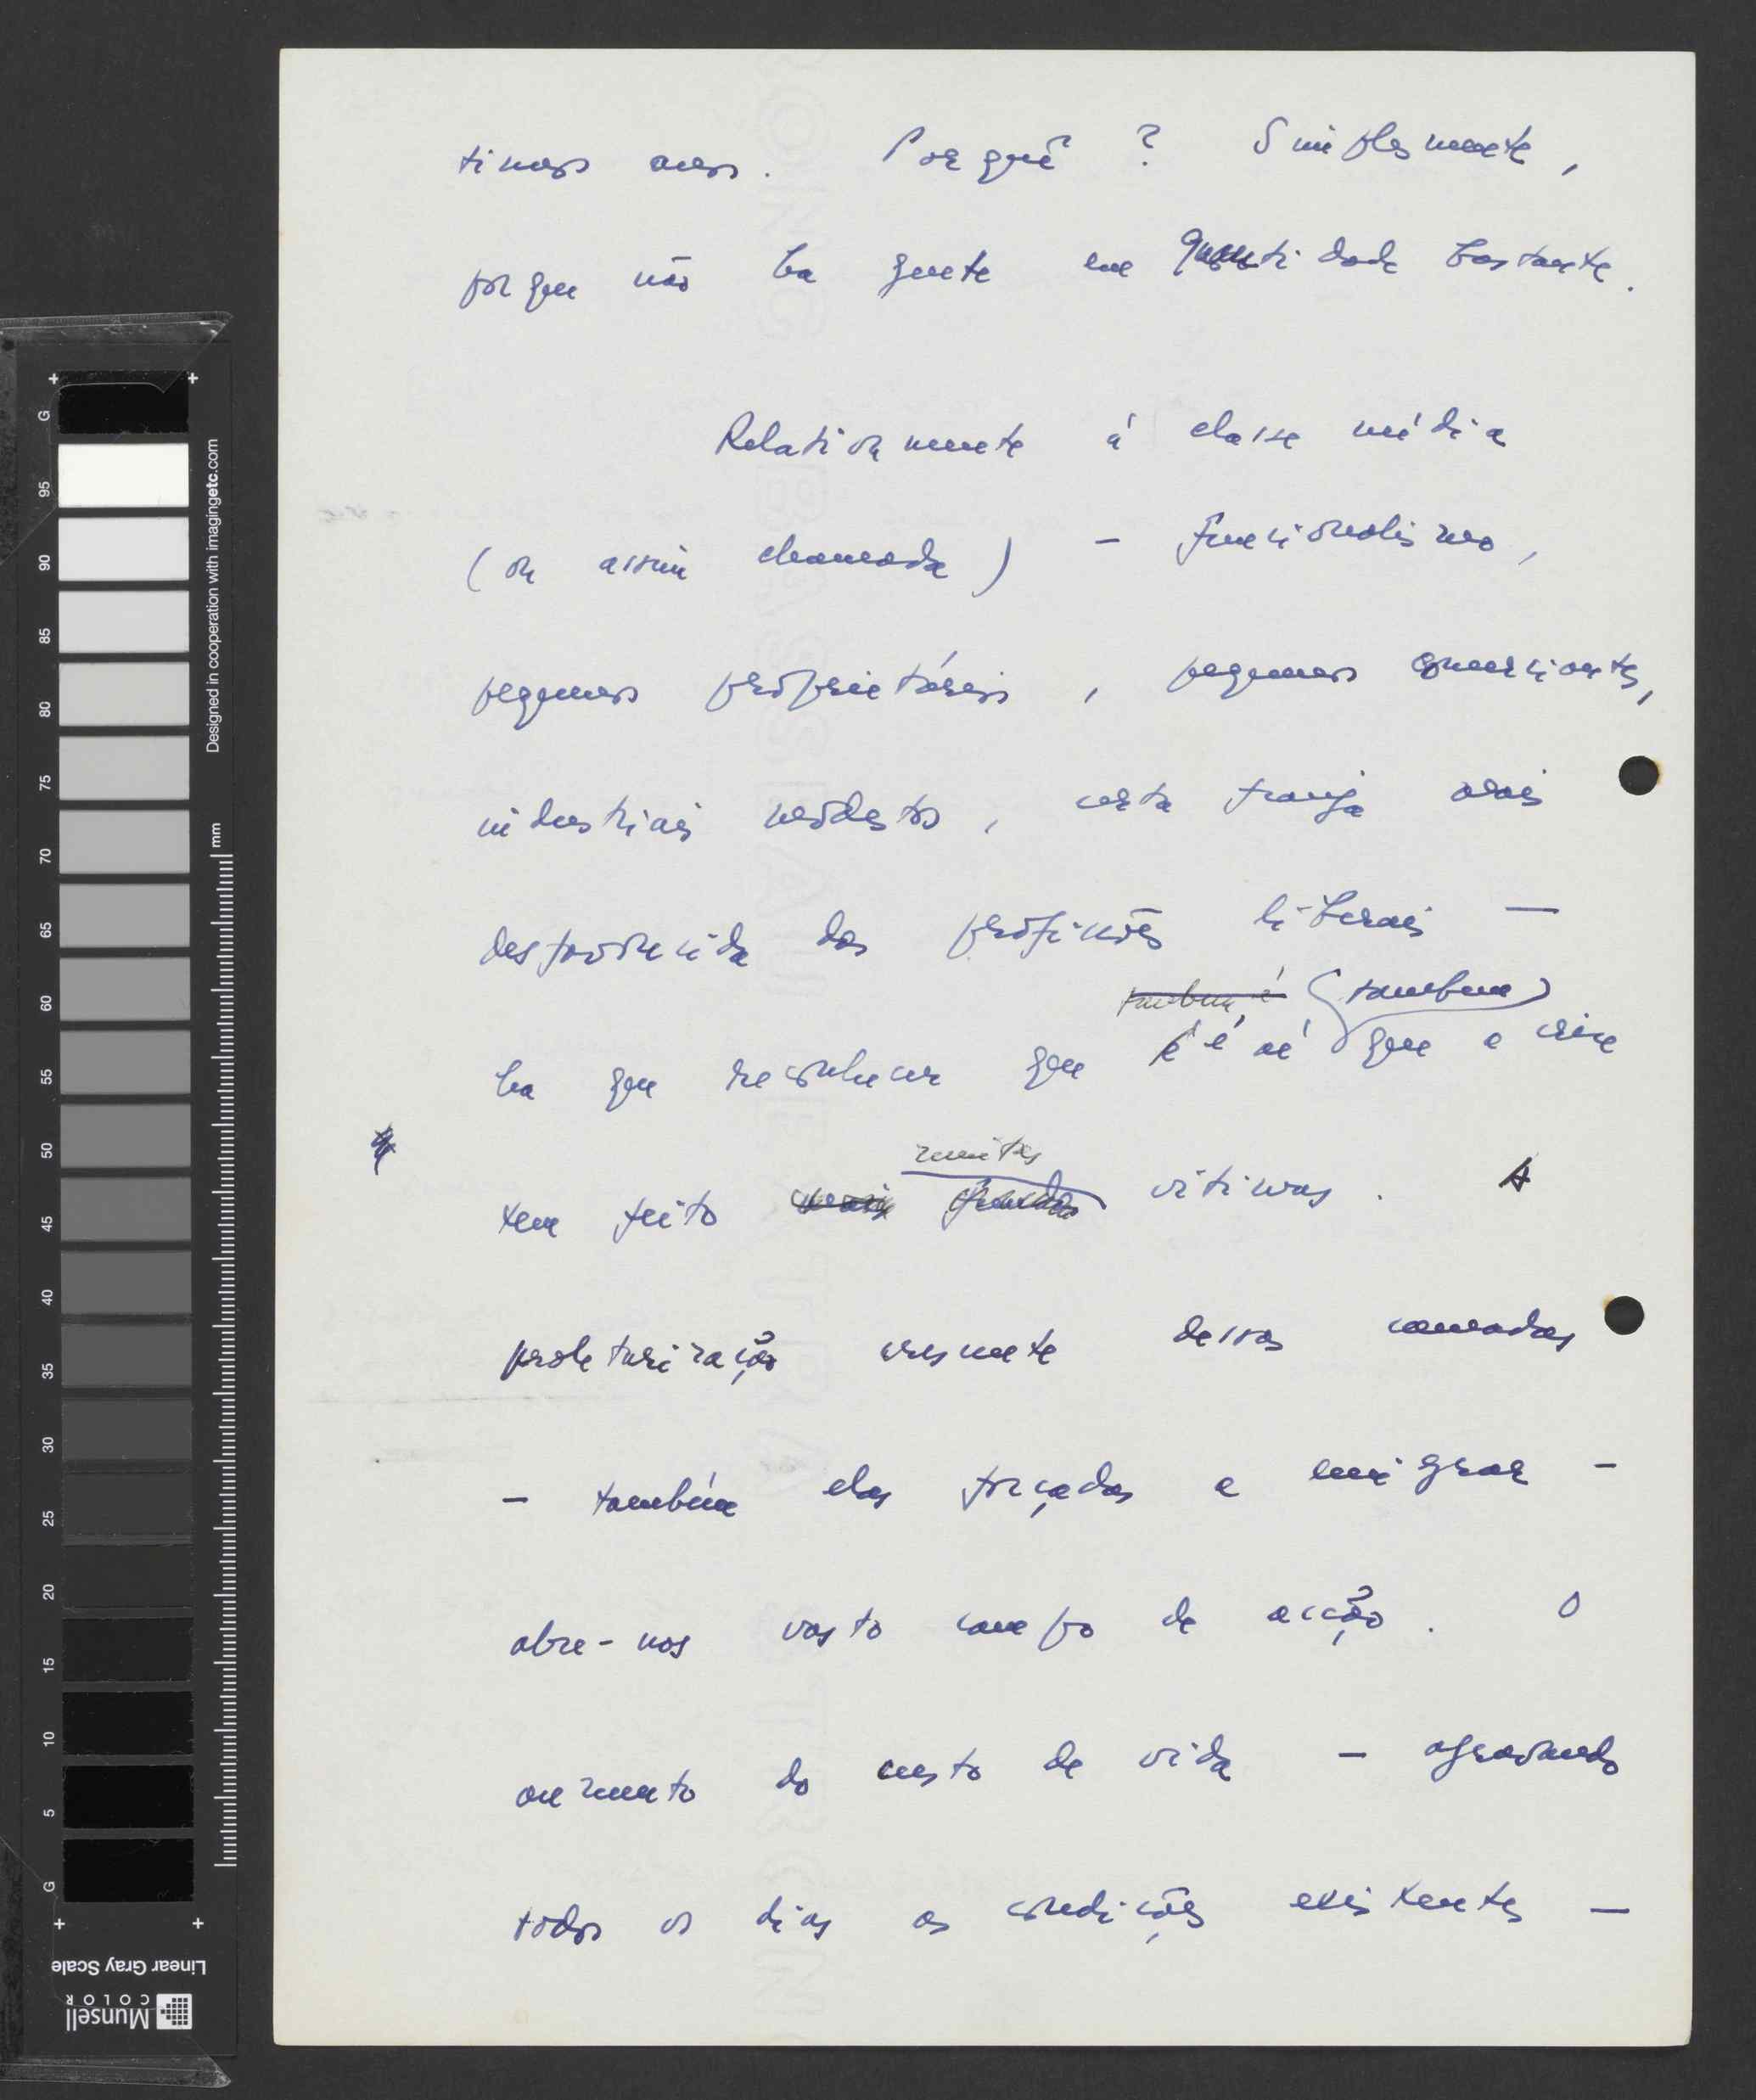 timos anos. Porquê? Simplesmente,
porque não ha gente em quantidade bastante.
Relativamente á classe média
(ou assim chamada) - funcionalismo,
pequenos proprietários, pequenos comerciantes,
industriais modestos, certa franja mais
desfavorecida das profissões liberais -
também é (também)
ha que reconhecer que é é aí que a crise
muitas
tem feito mais grandes vitimas. A
proletarização crescente dessas camadas
- também elas forçadas a emigrar -
abre-nos vasto campo de acção. O
aumento do custo de vida - agravando
todos os dias as condições existentes -
+ +
G
95
90
85
80
75
70
65
60
55
50
45
40
35
30
25
20
15
10
5
G
+ +
Designed in cooperation with imagingetc.com
mm
Linear Gray Scale
Munsell
COLOR